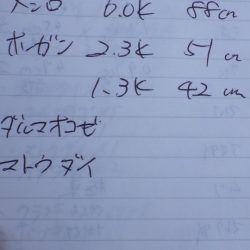 メジロ 6.0K 88cm
ホゴガン 2.3K 51cm
1.3K 42cm
ダルマオコゼ
マトウダイ